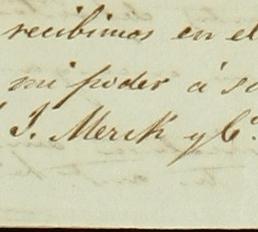 recibimos en el
mi poder á su
J. Merck y Cª.